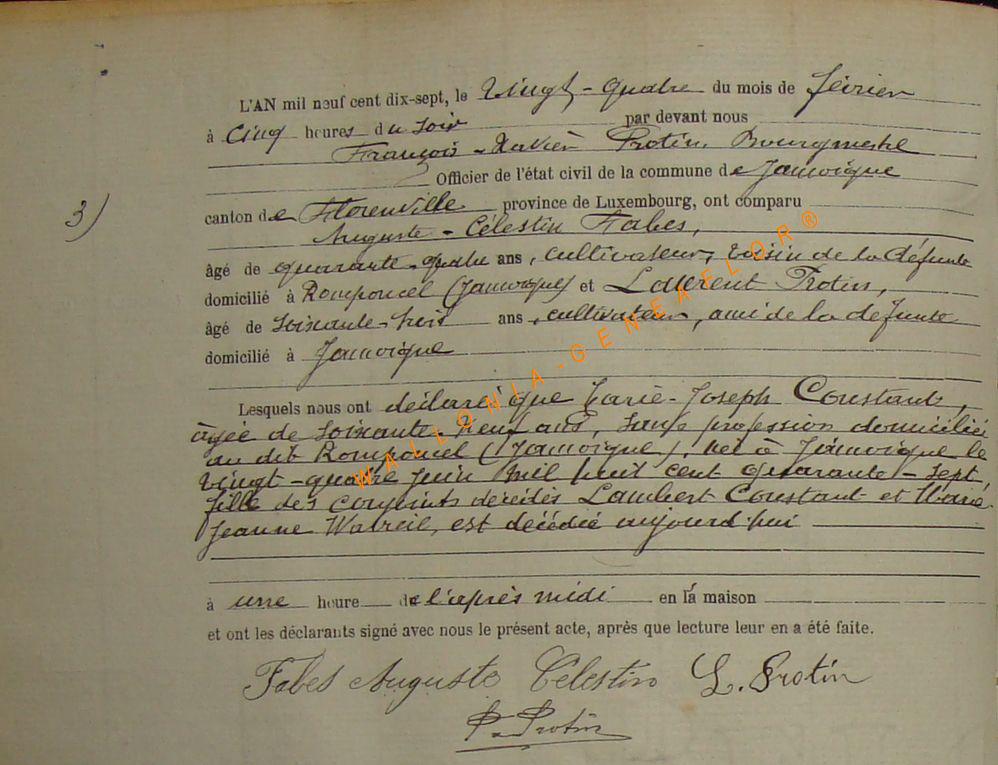 L'AN mil neuf cent dix-sept, le Vingt-quatre du mois de février
à cinq heures du soir par devant nous
François-Xavier Protin, Bourgmestre
Officier de l'état civil de la commune de Jamoigne
3)
canton de Florenville province de Luxembourg, ont comparu
Auguste-Célestin Fabes,
âgé de quarante-quatre ans, cultivateur, voisin de la défunte
domicilié à Romponcel (Jamoigne) et Laurent Protin,
âgé de soixante-trois ans, cultivateur, ami de la défunte
domicilié à Jamoigne
Lesquels nous ont déclaré que Marie-Joseph Constant,
âgée de soixante-neuf ans, sans profession domiciliée
au dit Romponcel (Jamoigne), née à Jamoigne le
vingt-quatre juin mil huit cent quarante-sept,
fille des conjoints décédés Lambert Constant et Marie
Jeanne est décédée aujourd'hui
à une heure de l'après midi en la maison
et ont les déclarants signé avec nous le présent acte, après que lecture leur en a été faite.
Fabes Auguste Célestin L. Protin
Protin
WALLONIA-GENEAFLOR®